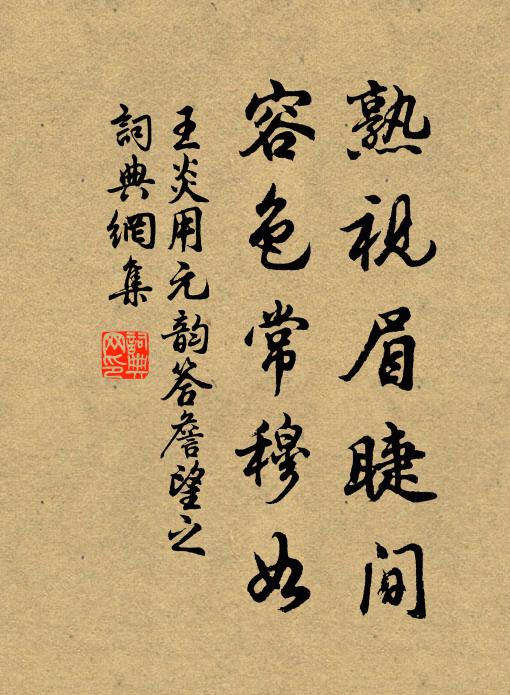 熟視眉睫间
容色常穆如
王炎用元韵答詹望之
詞典網集
詞典网印